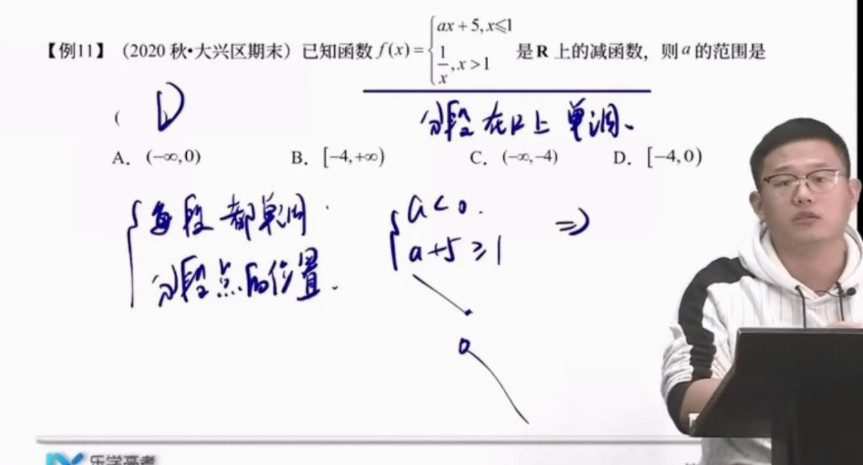 【例11】（2020 秋•大兴区期末）已知函数 f(x)={ax+5,x⩽1 1/x,x>1 是 R 上的减函数，则 a 的范围是
( D )
分段在R上单调.
A. (-∞,0) B. [-4,+∞) C. (-∞,-4) D. [-4,0)
{每段都单调.
分段点的位置.
{a<0.
a+5≥1 ⇒
乐学高考